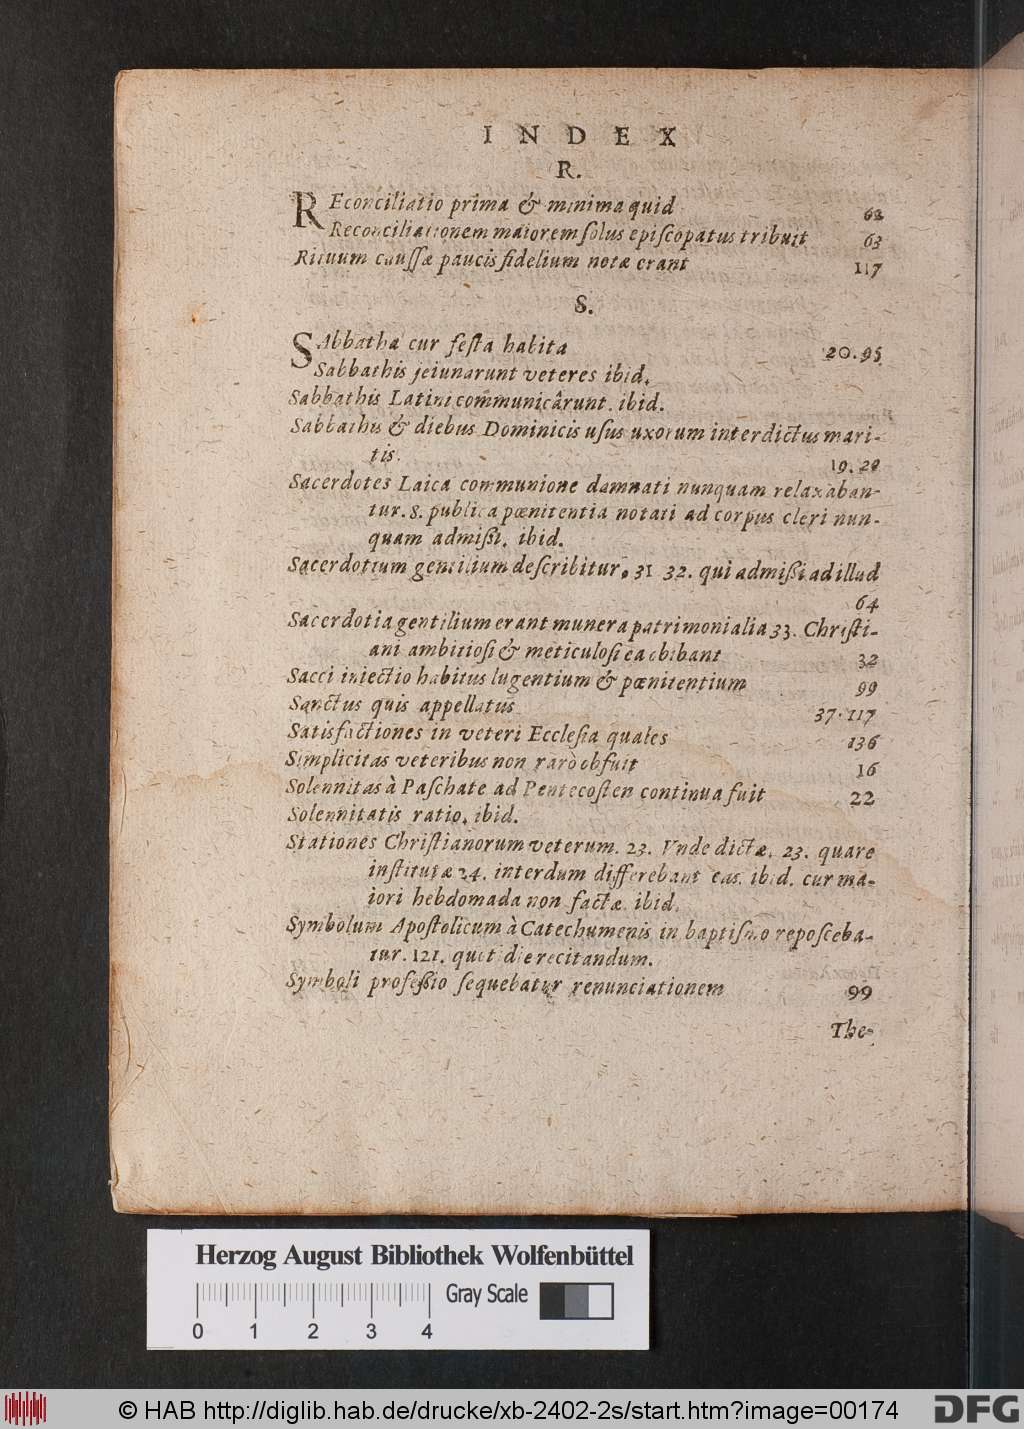 INDEX
R.
REconciliatio prima & minima quid 62
Reconciliationem maiorem solus episcopatus tribuit 63
Rituum caussæ paucis fidelium notæ erant 117
S.
SAbbatha cur festa habita 20.95
Sabbathis jeiunarunt veteres ibid.
Sabbathis Latini communicârunt. ibid.
Sabbathis & diebus Dominicis usus uxorum interdictus mari-
tis. 19.20
Sacerdotes Laica communione damnati nunquam relaxaban-
tur. 8. publica pœnitentia notati ad corpus cleri nun-
quam admissi. ibid.
Sacerdotium gentilium describitur. 31 32. qui admissi ad illud
64
Sacerdotia gentilium erant munera patrimonialia 33. Christi-
ani ambitiosi & meticulosi ea obibant 32
Sacci iniectio habitus lugentium & pœnitentium 99
Sanctus quis appellatus 37.117
Satisfactiones in veteri Ecclesia quales 136
Simplicitas veteribus non rarò obfuit 16
Solennitas à Paschate ad Pentecosten continua fuit 22
Solennitatis ratio. ibid.
Stationes Christianorum veterum. 23. Vnde dictæ. 23. quare
institutæ 24. interdum differebant eas. ibid. cur ma-
iori hebdomada non factæ ibid.
Symbolum Apostolicum à Catechumenis in baptismo reposceba-
tur. 121. quotidie recitandum.
Symboli professio sequebatur renunciationem 99
The-
Herzog August Bibliothek Wolfenbüttel
Gray Scale
0 1 2 3 4
© HAB http://diglib.hab.de/drucke/xb-2402-2s/start.htm?image=00174
DFG